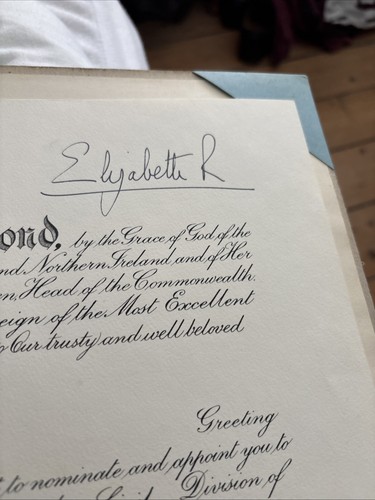 Elizabeth R
ond, by the Grace of God of the
nd Northern Ireland and of Her
en, Head of the Commonwealth.
eign of the Most Excellent
o Our trusty and well beloved
Greeting
t to nominate and appoint you to
Division of